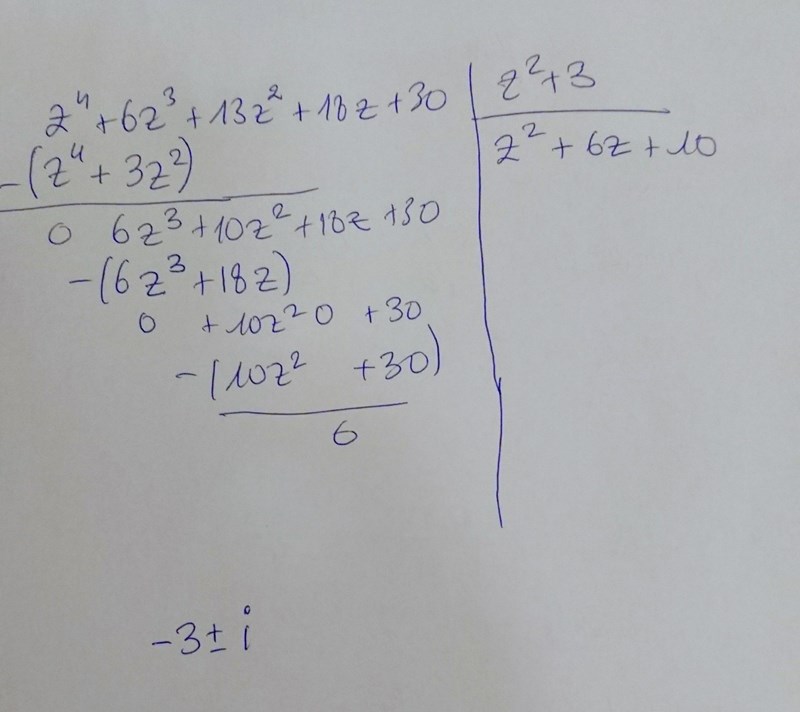 z⁴ + 6z³ + 13z² + 18z + 30 | z² + 3
-(z⁴ + 3z²)
z² + 6z + 10
0 6z³ + 10z² + 18z + 30
-(6z³ + 18z)
0 + 10z² 0 + 30
-(10z² + 30)
6
-3 ± i